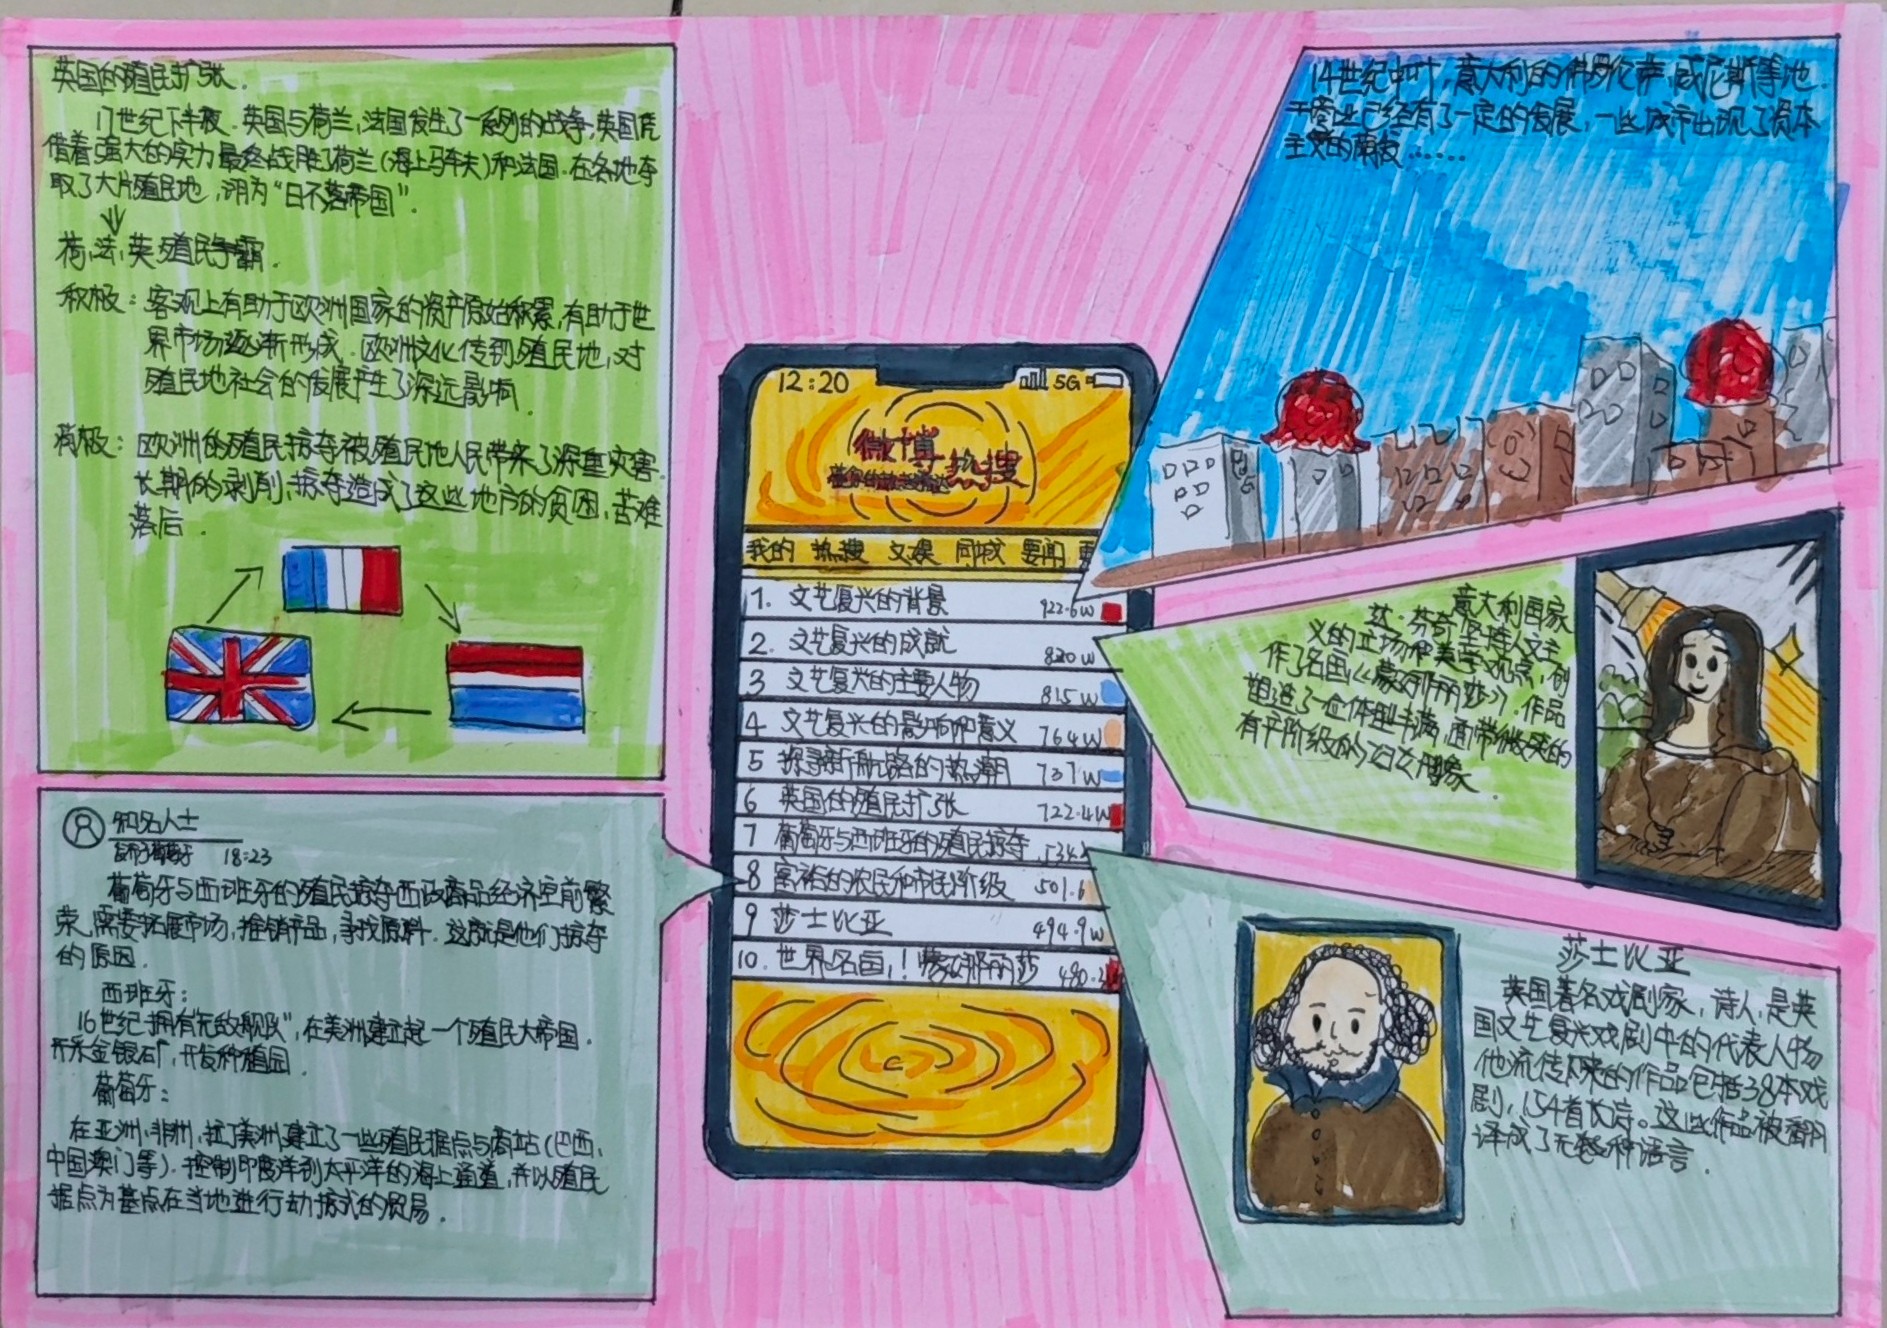 英国的殖民扩张.
17世纪下半夜.英国与荷兰,法国发生了一系列的战争,英国凭
借着强大的实力最终战胜了荷兰(海上马车夫)和法国.在各地夺
取了大片殖民地,谓为"日不落帝国".
荷,法,英殖民争霸.
积极:客观上有助于欧洲国家的资产原始积累,有助于世
界市场逐渐形成.欧洲文化传到殖民地,对
殖民地社会的发展产生了深远影响.
消极:欧洲的殖民掠夺被殖民地人民带来了深重灾害.
长期的剥削,掠夺造成了这些地方的贫困,苦难
落后.
知名人士
发布于葡萄牙 18:23
葡萄牙与西班牙的殖民掠夺西欧商品经济空前繁
荣,需要拓展市场,推销产品,寻找原料.这就是他们掠夺
的原因.
西班牙:
16世纪拥有"无敌舰队",在美洲建立起一个殖民大帝国.
开采金银矿,开发种植园.
葡萄牙:
在亚洲,非洲,拉丁美洲建立了一些殖民据点与商站(巴西,
中国澳门等).控制印度洋到太平洋的海上通道,并以殖民
据点为基点在当地进行劫掠式的贸易.
12:20 5G
微博热搜
我的 热搜 文娱 同城 要闻
1. 文艺复兴的背景 922.6W
2. 文艺复兴的成就 820W
3 文艺复兴的主要人物 815W
4 文艺复兴的影响和意义 764W
5 探寻新航路的热潮 737W
6 英国的殖民扩张 722.4W
7 葡萄牙与西班牙的殖民掠夺 534.
8 富裕的农民和市民阶级 501.6
9 莎士比亚 494.9W
10. 世界名画,!蒙娜丽莎 480.2
14世纪中叶,意大利的佛罗伦萨,威尼斯等地.
手工业已经有了一定的发展,一些城市出现了资本
主义的萌发......
意大利画家
达·芬奇坚持人文主
义的立场和美学观点,创
作了名画《蒙娜丽莎》.作品
塑造了一位体型丰满,面带微笑的
有平阶级的妇女形象.
莎士比亚
英国著名戏剧家,诗人,是英
国文艺复兴戏剧中的代表人物
他流传下来的作品包括38本戏
剧,154首长诗。这些作品被翻
译成了无数种语言.